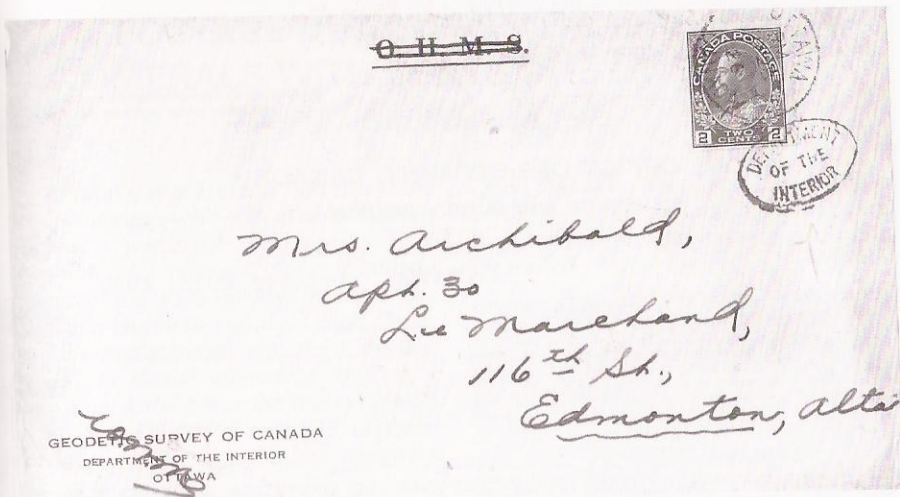 O. H. M. S.
OTTAWA
CANADA POSTAGE
2 TWO CENTS 2
DEPARTMENT
OF THE
INTERIOR
Mrs. Archibald,
Apt. 30
Le Marchand,
116th St.,
Edmonton, Alta
GEODETIC SURVEY OF CANADA
DEPARTMENT OF THE INTERIOR
OTTAWA